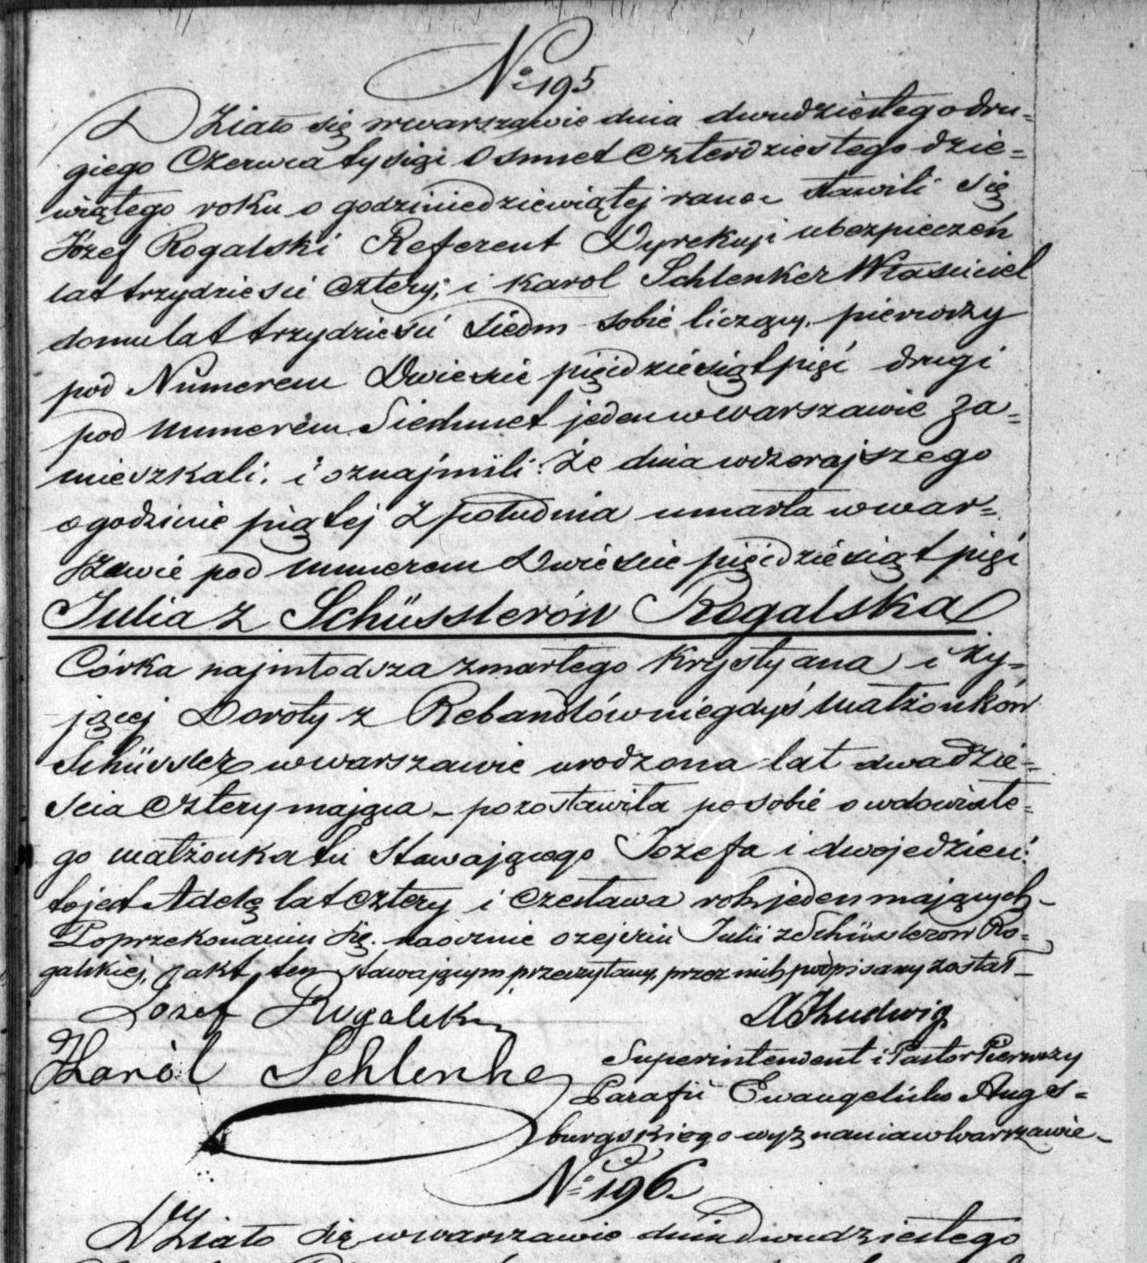 No 195
Działo się w warszawie dnia dwudziestego dru=
giego Czerwca tysiąc Osmset Czterdziestego dzie=
wiątego roku o godzinie dziewiątej rano. stawili się
Józef Rogalski Referent Dyrekcyi ubezpieczeń
lat trzydzieści cztery, i Karol Schlenker Właściciel
domu lat trzydzieści siedm sobie liczący. pierwszy
pod Numerem Dwieście pięćdziesiąt pięć drugi
pod numerem Siedmset jeden w warszawie za=
mieszkali. i oznajmili. Że dnia wczorajszego
o godzinie piątej z południa umarła w war=
szawie pod numerem Dwieście pięćdziesiąt pięć
Julia z Schüsslerów Rogalska
Córka najmłodsza zmarłego Krystyana i ży=
jącej Doroty z Rebandtów niegdyś małżonków
Schüssler w warszawie urodzona lat dwadzie=
ścia cztery mająca – pozostawiła po sobie owdowiałe=
go małżonka tu stawającego Józefa i dwoje dzieci:
to jest Adelę lat cztery i Czesława rok jeden mających –
Po przekonaniu się naocznie o zejściu Julii z Schüsslerów Ro=
galskiej, akt ten stawającym przeczytany, przez nich podpisany został –
Józef Rogalski
Karól Schlenker
Ludwig
Superintendent i Pastor Pierwszy
Parafii Ewangelicko Augs=
burgskiego wyznania w Warszawie –
No 196.
Działo się w warszawie dnia dwudziestego